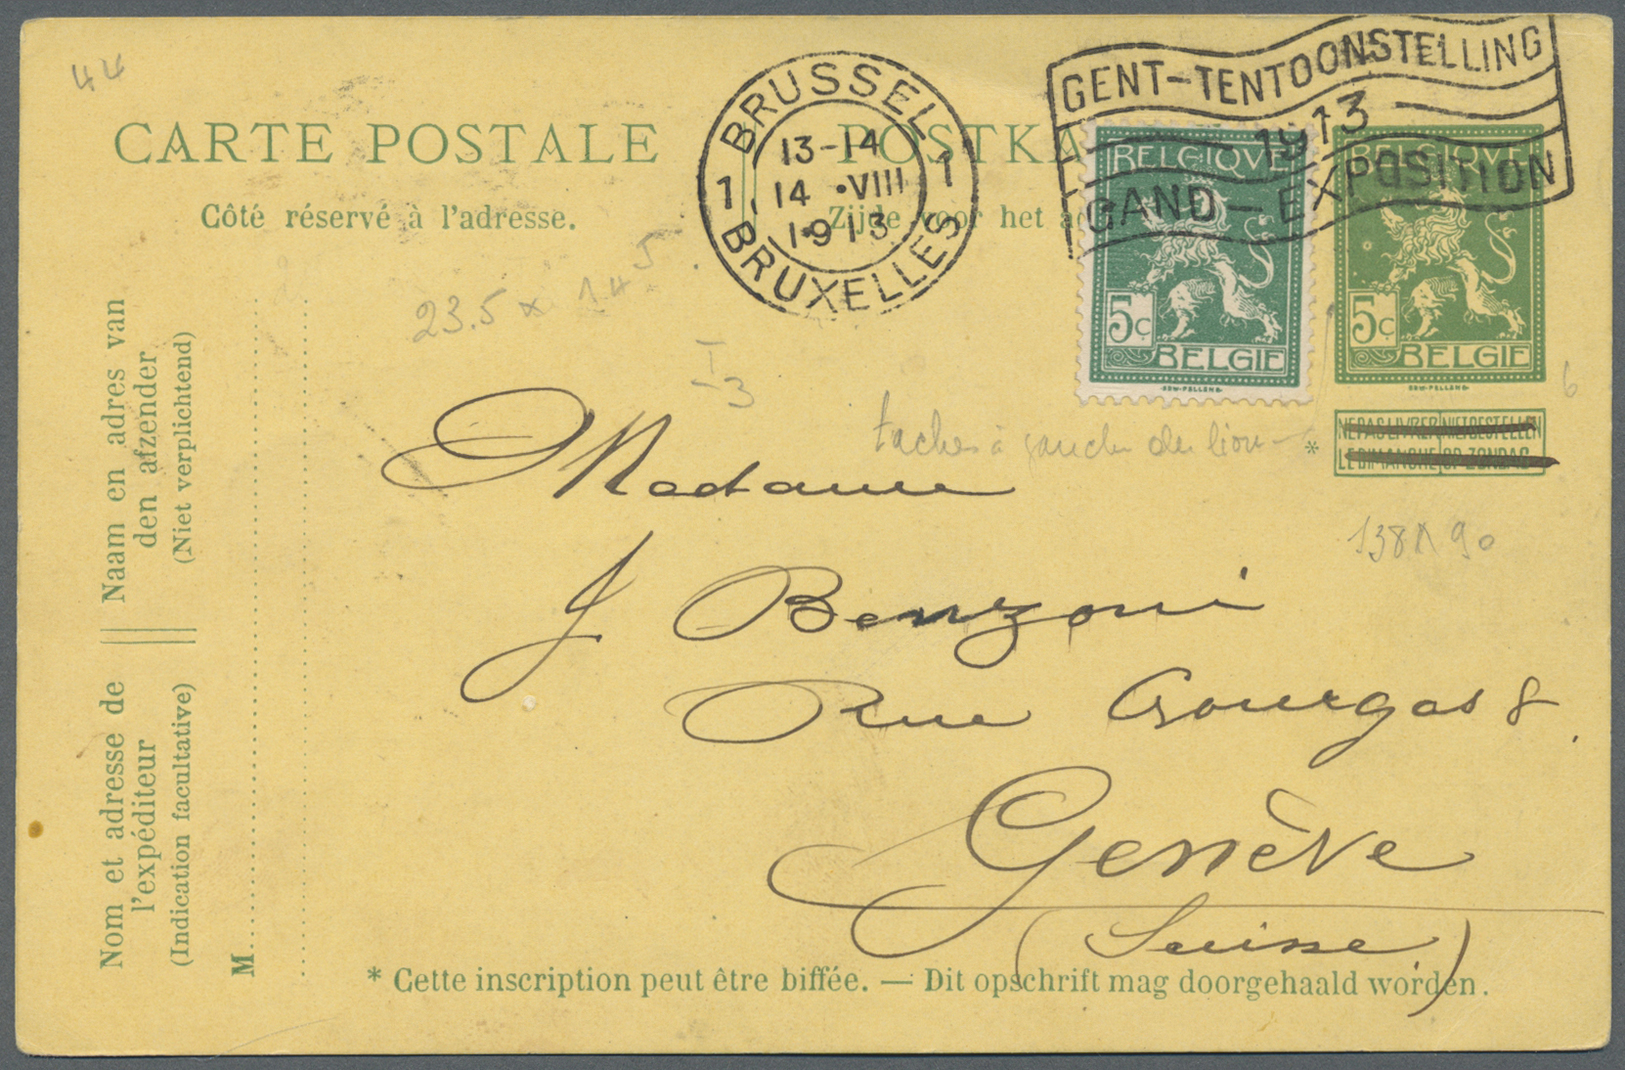 44
CARTE POSTALE
Côté réservé à l'adresse.
POSTKA
Zijde voor het a
BRUSSEL
1 1
13-14
14 •VIII
1913
BRUXELLES
GENT-TENTOONSTELLING
1913
GAND-EXPOSITION
BELGIQVE
5c
BELGIE
BELGIQVE
5c
BELGIE
NE PAS LIVRER NIET BESTELLEN
LE DIMANCHE OP ZONDAG
*
23.5 x 14 5
I
-3
6
taches à gauche du lion
138A 90
Madame
J Benzoni
Rue Gourgas 8.
Genève
(Suisse)
Naam en adres van
den afzender
(Niet verplichtend)
Nom et adresse de
l'expéditeur
(Indication facultative)
M
* Cette inscription peut être biffée. — Dit opschrift mag doorgehaald worden.